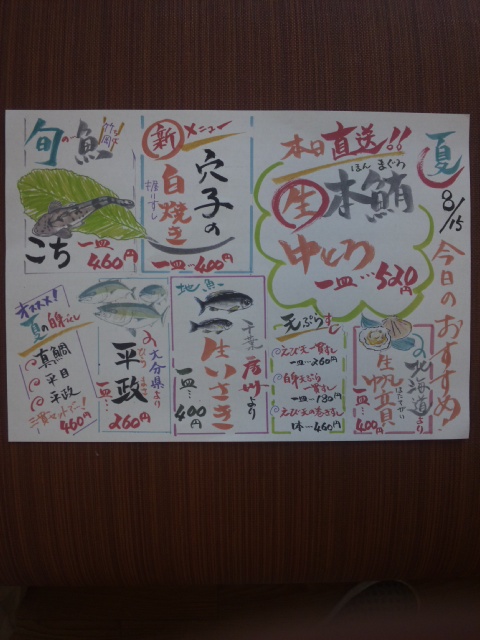 夏
8/15
今日のおすすめ！
本日直送！！
ほん まぐろ
生本鮪
中とろ
一皿…520円
新メニュー
穴子の
白焼き
握りずし
一皿…400円
旬の魚
こち
一皿…460円
の北海道より
生帆立貝
ほたてがい
一皿…400円
天ぷらずし
えび天一貫ずし
一皿…260円
白身天ぷら
一貫ずし
一皿…180円
えび天の巻きずし
1本…460円
地魚
千葉房州より
生いさき
一皿…400円
の大分県より
平政
ひらまさ
一皿…260円
オススメ！
夏の白身づくし
真鯛
平目
平政
三貫セットで…！
460円